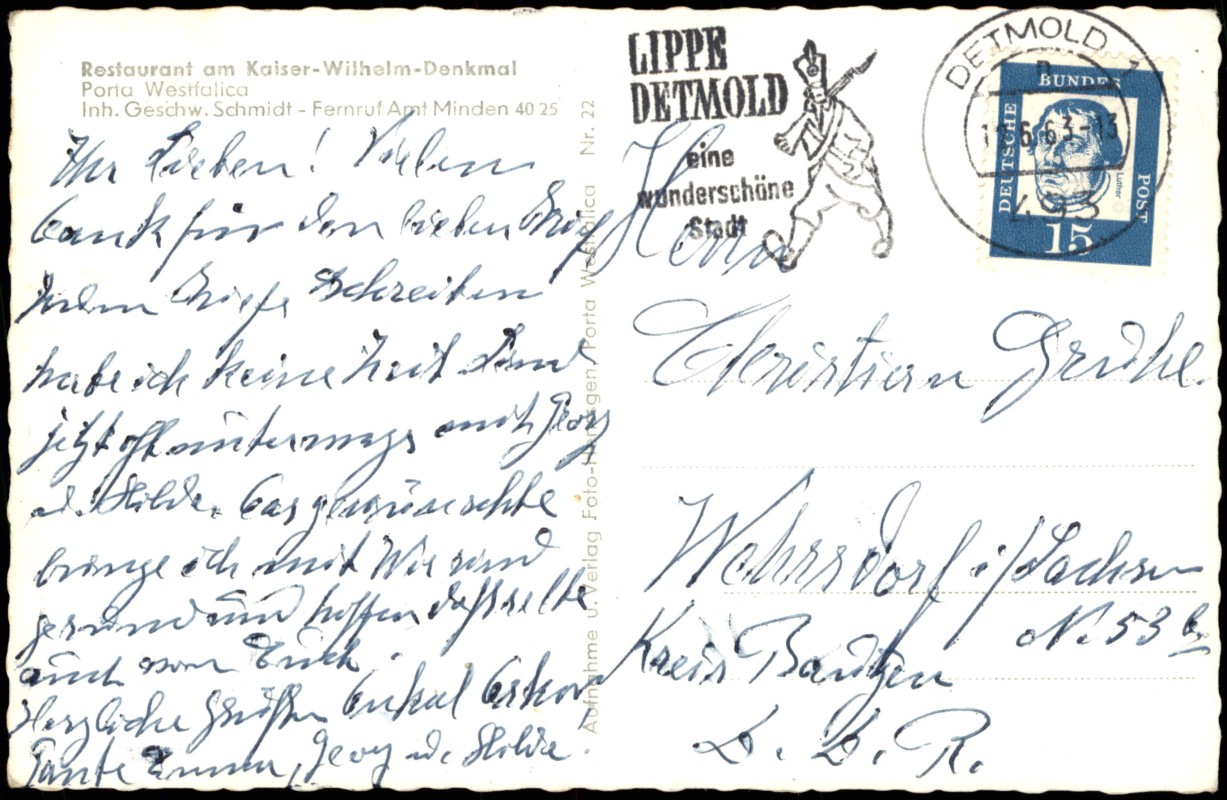 Restaurant am Kaiser-Wilhelm-Denkmal
Porta Westfalica
Inh. Geschw. Schmidt - Fernruf Amt Minden 40 25
Ihr Lieben! Vielen
Dank für den lieben
Briefe Schreiben
habe ich keine Zeit Sind
jetzt oft unterwegs mit Georg
u. Hilde. Das gewünschte
bringe ich mit Wir sind
gesund und hoffen dasselbe
auch von Euch.
Herzliche Grüße Onkel Oskar
Tante Emma, Georg u. Hilde.
Aufnahme u. Verlag Foto- Porta Westfalica Nr. 22
LIPPE
DETMOLD
eine
wunderschöne
Stadt
DETMOLD 1
493
DEUTSCHE
BUNDES
POST
Luther
15
Herrn
Christian Gruhl
Wehrsdorf i/Sachsen
Nr. 53 b
Kreis Bautzen
D. D. R.